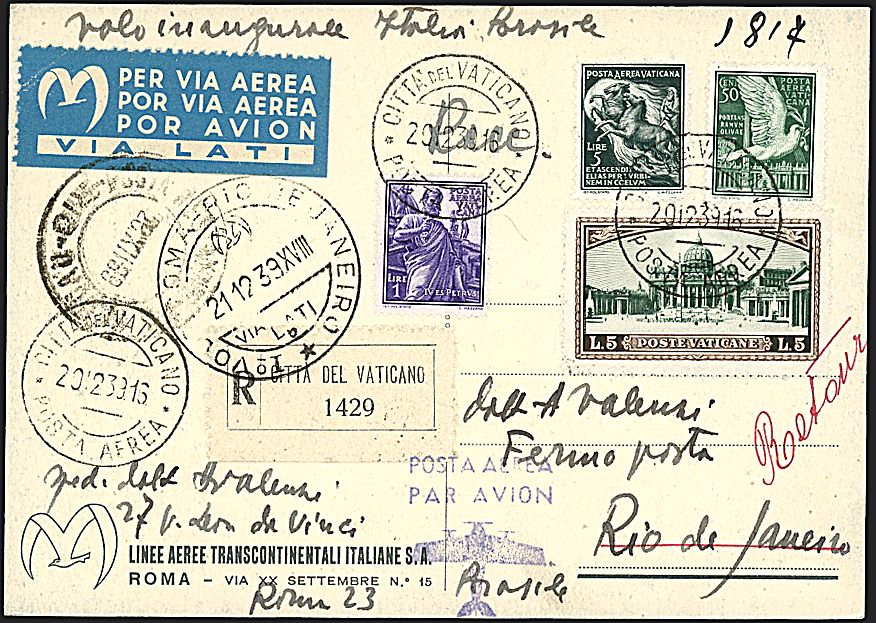 volo inaugurale Italia Brasile
1817
PER VIA AEREA
POR VIA AEREA
POR AVION
VIA LATI
CITTÀ DEL VATICANO
20.12.39.16
POSTA AEREA
Racc.
POSTA AEREA VATICANA
LIRE 5
ET ASCENDI
ELIAS PER TURBI
NEM IN CŒLUM
CENT 50
POSTA
AEREA
VATI-
CANA
PORTANS
RAMUM
OLIVAE
POSTA
AEREA
LIRE 1
IVES PETRVS
CITTÀ DEL VATICANO
20.12.39.16
POSTA AEREA
L.5 POSTE VATICANE L.5
ROMA RIO DE JANEIRO
21 12 39 XVIII
VIA LATI
1º VOLO
CITTÀ DEL VATICANO
20.12.39.16
POSTA AEREA
R CITTÀ DEL VATICANO
1429
Retour
dott A Valensi
Fermo posta
Rio de Janeiro
Brasile
POSTA AEREA
PAR AVION
sped. dott A Valensi
27 v. Leon da Vinci
LINEE AEREE TRANSCONTINENTALI ITALIANE S.A.
ROMA – VIA XX SETTEMBRE N.º 15
Roma 23